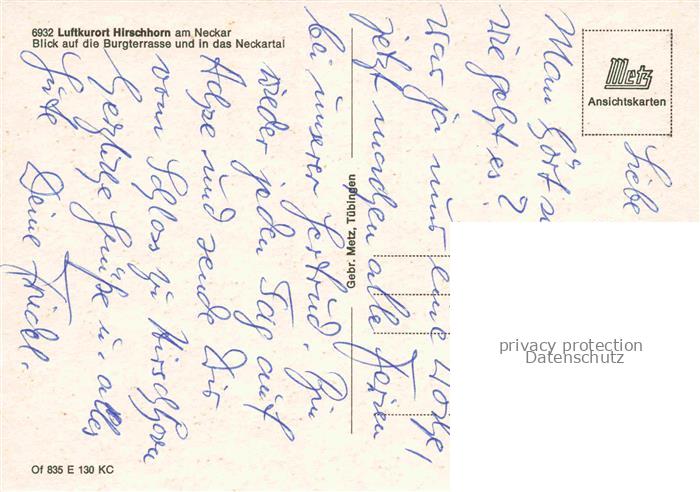 6932 Luftkurort Hirschhorn am Neckar
Blick auf die Burgterrasse und in das Neckartal
Metz
Ansichtskarten
Gebr. Metz, Tübingen
Liebe
Man hört n
wie geht es?
War ja nur eine Woche,
jetzt machen alle Ferien
bei unserer Gertrud. Bin
wieder jeden Tag auf
Achse und sende Dir
vom Schloss zu Hirschhorn
herzliche Grüße u. alles
Gute Deine Friedl.
Of 835 E 130 KC
privacy protection
Datenschutz